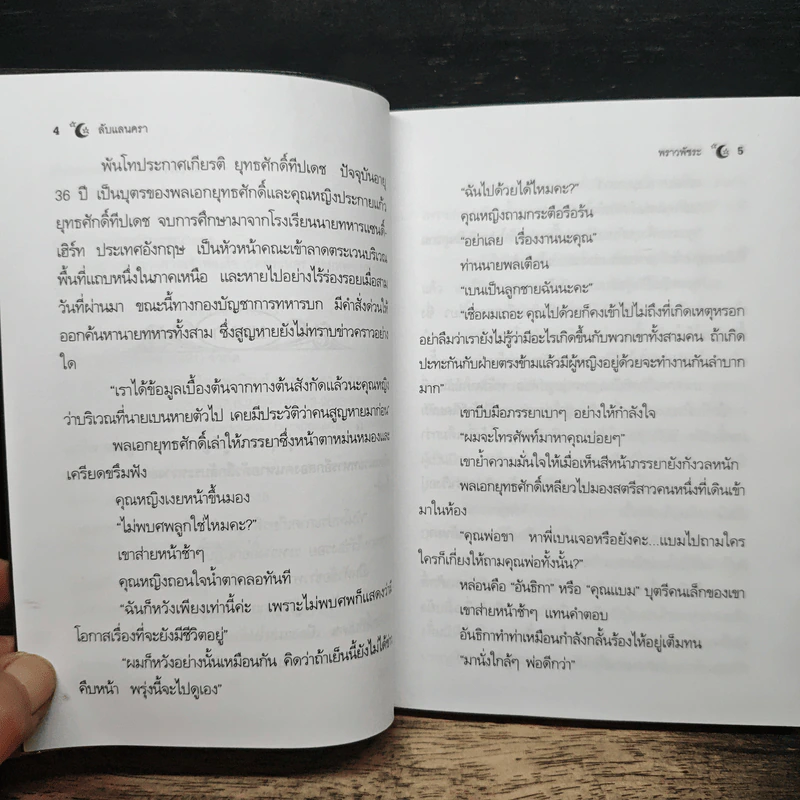 4 ลับแลนครา
พันโทประกาศเกียรติ ยุทธศักดิ์ทีปเดช ปัจจุบันอายุ
36 ปี เป็นบุตรของพลเอกยุทธศักดิ์และคุณหญิงประกายแก้ว
ยุทธศักดิ์ทีปเดช จบการศึกษามาจากโรงเรียนนายทหารแซนด์-
เฮิร์ท ประเทศอังกฤษ เป็นหัวหน้าคณะเข้าลาดตระเวนบริเวณ
พื้นที่แถบหนึ่งในภาคเหนือ และหายไปอย่างไร้ร่องรอยเมื่อสาม
วันที่ผ่านมา ขณะนี้ทางกองบัญชาการทหารบก มีคำสั่งด่วนให้
ออกค้นหานายทหารทั้งสาม ซึ่งสูญหายยังไม่ทราบข่าวคราวอย่าง
ใด
"เราได้ข้อมูลเบื้องต้นจากทางต้นสังกัดแล้วนะคุณหญิง
ว่าบริเวณที่นายเบนหายตัวไป เคยมีประวัติว่าคนสูญหายมาก่อน"
พลเอกยุทธศักดิ์เล่าให้ภรรยาซึ่งหน้าตาหม่นหมองและ
เครียดขรึมฟัง
คุณหญิงเงยหน้าขึ้นมอง
"ไม่พบศพลูกใช่ไหมคะ?"
เขาส่ายหน้าช้าๆ
คุณหญิงถอนใจน้ำตาคลอทันที
"ฉันก็หวังเพียงเท่านี้ค่ะ เพราะไม่พบศพก็แสดงว่ามี
โอกาสเรื่องที่จะยังมีชีวิตอยู่"
"ผมก็หวังอย่างนั้นเหมือนกัน คิดว่าถ้าเย็นนี้ยังไม่ได้ข่าว
คืบหน้า พรุ่งนี้จะไปดูเอง"
พราวพัชระ 5
"ฉันไปด้วยได้ไหมคะ?"
คุณหญิงถามกระตือรือร้น
"อย่าเลย เรื่องงานนะคุณ"
ท่านนายพลเตือน
"เบนเป็นลูกชายฉันนะคะ"
"เชื่อผมเถอะ คุณไปด้วยก็คงเข้าไปไม่ถึงที่เกิดเหตุหรอก
อย่าลืมว่าเรายังไม่รู้ว่ามีอะไรเกิดขึ้นกับพวกเขาทั้งสามคน ถ้าเกิด
ปะทะกันกับฝ่ายตรงข้ามแล้วมีผู้หญิงอยู่ด้วยจะทำงานกันลำบาก
มาก"
เขาบีบมือภรรยาเบาๆ อย่างให้กำลังใจ
"ผมจะโทรศัพท์มาหาคุณบ่อยๆ"
เขาย้ำความมั่นใจให้เมื่อเห็นสีหน้าภรรยายังกังวลหนัก
พลเอกยุทธศักดิ์เหลียวไปมองสตรีสาวคนหนึ่งที่เดินเข้า
มาในห้อง
"คุณพ่อขา หาพี่เบนเจอหรือยังคะ...แบมไปถามใคร
ใครก็เกี่ยงให้ถามคุณพ่อทั้งนั้น?"
หล่อนคือ "อันธิกา" หรือ "คุณแบม" บุตรีคนเล็กของเขา
เขาส่ายหน้าช้าๆ แทนคำตอบ
อันธิกาทำท่าเหมือนกำลังกลั้นร้องไห้อยู่เต็มทน
"มานั่งใกล้ๆ พ่อดีกว่า"